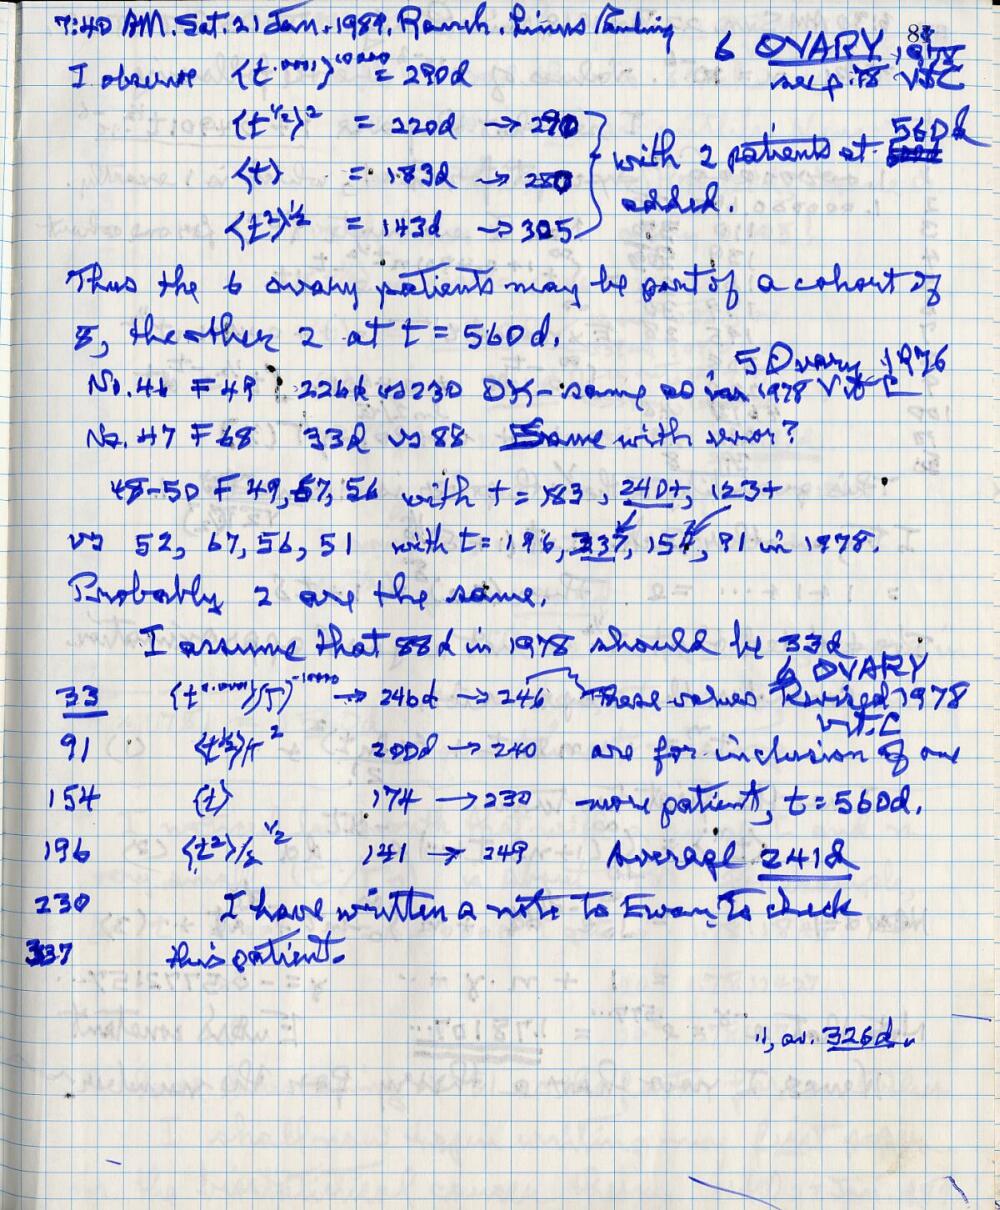 7:40 AM. Sat. 21 Jan. 1989. Ranch. Linus Pauling
6 OVARY 1978
see p. 78 Vit C
I observe ⟨t^.0001⟩^10000 = 290d
⟨t^1/2⟩^2 = 220d → 290
⟨t⟩ = 183d → 280
⟨t^2⟩^1/2 = 143d → 305
with 2 patients at 560d
added.
Thus the 6 ovary patients may be part of a cohort of
8, the other 2 at t = 560d.
5 Ovary 1976
No. 46 F 49 226d vs 230 OK - same as in 1978 Vit C
No. 47 F 68 33d vs 88 Same with error?
48-50 F 49, 67, 56 with t = 183, 240+, 123+
vs 52, 67, 56, 51 with t = 196, 337, 154, 91 in 1978.
Probably 2 are the same.
I assume that 88d in 1978 should be 33d
6 OVARY
33 246d → 246 These values Revised 1978
Vit. C
91 200d → 240 are for inclusion of one
154 ⟨t⟩ 174 → 230 more patient, t = 560d.
196 ⟨t^2⟩/2^1/2 141 → 249 Average 241d
230 I have written a note to Ewan to check
337 this patient.
11, av. 326d.